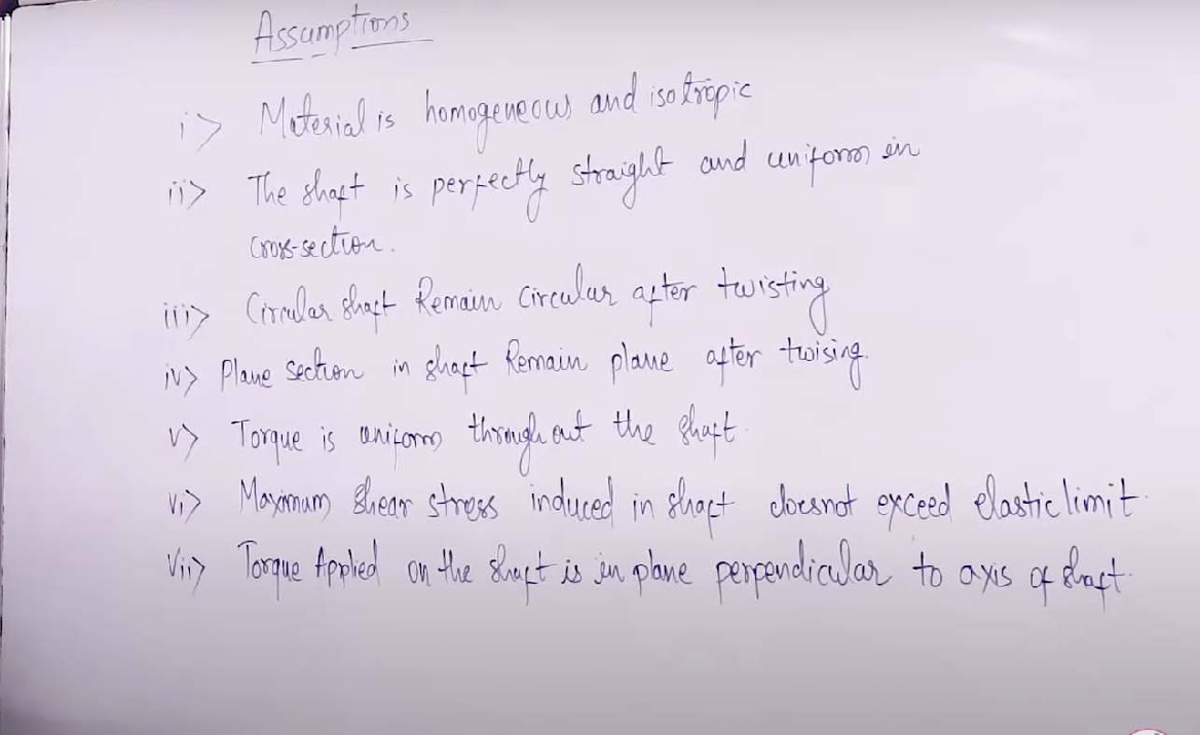 Assumptions
i> Material is homogeneous and isotropic
ii> The shaft is perfectly straight and uniform in
cross-section.
iii> Circular shaft Remain circular after twisting
iv> Plane section in shaft Remain plane after twising.
v> Torque is uniform throughout the shaft.
vi> Maximum shear stress induced in shaft doesnot exceed elastic limit.
vii> Torque Applied on the shaft is in plane perpendicular to axis of shaft.